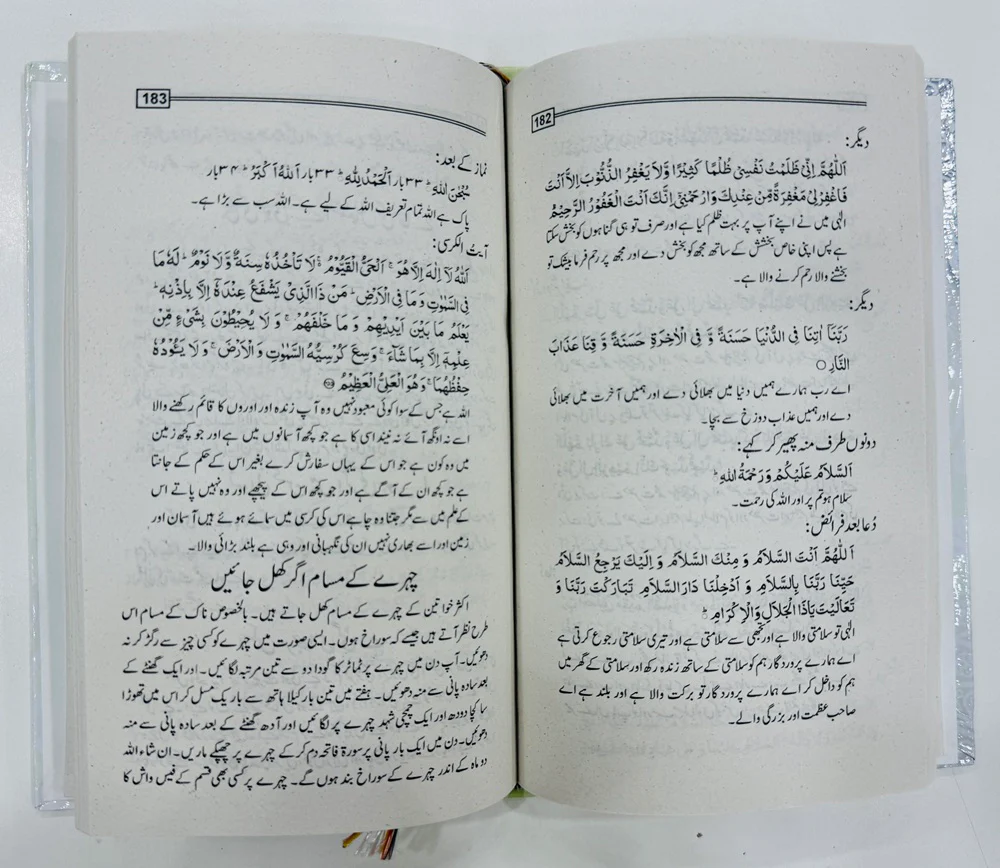 182
دیگر:
اَللّٰهُمَّ اِنِّیْ ظَلَمْتُ نَفْسِیْ ظُلْمًا کَثِیْرًا وَّلَا یَغْفِرُ الذُّنُوْبَ اِلَّا اَنْتَ
فَاغْفِرْلِیْ مَغْفِرَةً مِّنْ عِنْدِكَ وَارْحَمْنِیْ اِنَّكَ اَنْتَ الْغَفُوْرُ الرَّحِیْمُ
الٰہی میں نے اپنے آپ پر بہت ظلم کیا ہے اور صرف تو ہی گناہوں کو بخش سکتا
ہے پس اپنی خاص بخشش کے ساتھ مجھ کو بخش دے اور مجھ پر رحم فرما بیشک تو
بخشنے والا رحم کرنے والا ہے۔
دیگر:
رَبَّنَا اٰتِنَا فِی الدُّنْیَا حَسَنَةً وَّ فِی الْاٰخِرَةِ حَسَنَةً وَّ قِنَا عَذَابَ
النَّارِ ○
اے رب ہمارے ہمیں دنیا میں بھلائی دے اور ہمیں آخرت میں بھلائی
دے اور ہمیں عذاب دوزخ سے بچا۔
دونوں طرف منہ پھیر کر کہے:
اَلسَّلَامُ عَلَیْکُمْ وَرَحْمَةُ اللّٰهِ ؕ
سلام ہو تم پر اور اللہ کی رحمت۔
دُعا بعد فرائض:
اَللّٰهُمَّ اَنْتَ السَّلَامُ وَ مِنْكَ السَّلَامُ وَ اِلَیْكَ یَرْجِعُ السَّلَامُ
حَیِّنَا رَبَّنَا بِالسَّلَامِ وَ اَدْخِلْنَا دَارَ السَّلَامِ تَبَارَکْتَ رَبَّنَا وَ
تَعَالَیْتَ یَاذَا الْجَلَالِ وَالْاِکْرَامِ ؕ
الٰہی تو سلامتی والا ہے اور تجھی سے سلامتی ہے اور تیری سلامتی رجوع کرتی ہے
اے ہمارے پروردگار ہم کو سلامتی کے ساتھ زندہ رکھ اور سلامتی کے گھر میں
ہم کو داخل کر اے ہمارے پروردگار تو برکت والا ہے اور بلند ہے اے
صاحب عظمت اور بزرگی والے۔
183
نماز کے بعد:
سُبْحٰنَ اللّٰهِ ؕ ۳۳ بار اَلْحَمْدُ لِلّٰهِ ؕ ۳۳ بار اَللّٰهُ اَکْبَرُ ؕ ۳۴ بار
پاک ہے اللہ تمام تعریف اللہ کے لیے ہے۔ اللہ سب سے بڑا ہے۔
آیت الکرسی:
اَللّٰهُ لَآ اِلٰهَ اِلَّا هُوَ ۚ اَلْحَیُّ الْقَیُّوْمُ ۚ لَا تَاْخُذُهٗ سِنَةٌ وَّلَا نَوْمٌ ؕ لَهٗ مَا
فِی السَّمٰوٰتِ وَ مَا فِی الْاَرْضِ ؕ مَنْ ذَا الَّذِیْ یَشْفَعُ عِنْدَهٗٓ اِلَّا بِاِذْنِهٖ ؕ
یَعْلَمُ مَا بَیْنَ اَیْدِیْهِمْ وَ مَا خَلْفَهُمْ ۚ وَ لَا یُحِیْطُوْنَ بِشَیْءٍ مِّنْ
عِلْمِهٖٓ اِلَّا بِمَا شَآءَ ۚ وَسِعَ کُرْسِیُّهُ السَّمٰوٰتِ وَ الْاَرْضَ ۚ وَ لَا یَـُٔوْدُهٗ
حِفْظُهُمَا ۚ وَ هُوَ الْعَلِیُّ الْعَظِیْمُ
اللہ ہے جس کے سوا کوئی معبود نہیں وہ آپ زندہ اور اوروں کا قائم رکھنے والا
اسے نہ اونگھ آئے نہ نیند اسی کا ہے جو کچھ آسمانوں میں ہے اور جو کچھ زمین
میں وہ کون ہے جو اس کے یہاں سفارش کرے بغیر اس کے حکم کے جانتا
ہے جو کچھ ان کے آگے ہے اور جو کچھ اس کے پیچھے اور وہ نہیں پاتے اس
کے علم میں سے مگر جتنا وہ چاہے اس کی کرسی میں سمائے ہوئے ہیں آسمان اور
زمین اور اسے بھاری نہیں ان کی نگہبانی اور وہی ہے بلند بڑائی والا۔
چہرے کے مسام اگر کھل جائیں
اکثر خواتین کے چہرے کے مسام کھل جاتے ہیں۔ بالخصوص ناک کے مسام اس
طرح نظر آتے ہیں جیسے کہ سوراخ ہوں۔ ایسی صورت میں چہرے کو کسی چیز سے رگڑ کر نہ
دھوئیں۔ آپ دن میں چہرے پر ٹماٹر کا گودا دو سے تین مرتبہ لگائیں۔ اور ایک گھنٹے کے
بعد سادہ پانی سے منہ دھوئیں۔ ہفتے میں تین بار کیلا ہاتھ سے باریک مسل کر اس میں تھوڑا
سا کچا دودھ اور ایک چمچی شہد چہرے پر لگائیں اور آدھ گھنٹے کے بعد سادہ پانی سے منہ
دھوئیں۔ دن میں ایک بار پانی پر سورۃ فاتحہ دم کر کے چہرے پر چھپکے ماریں۔ ان شاء اللہ
دو ماہ کے اندر چہرے کے سوراخ بند ہوں گے۔ چہرے پر کسی بھی قسم کے فیس واش کا